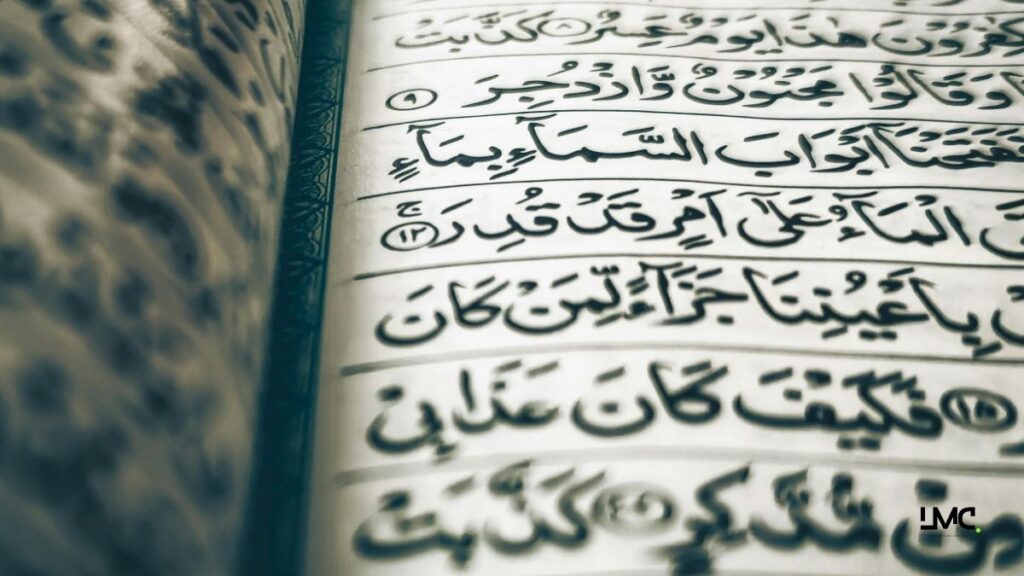 هٰذَا يَوْمٌ عَسِرٌ ۸ كَذَّبَتْ
وَقَالُوْا مَجْنُوْنٌ وَّازْدُجِرَ ۹
فَفَتَحْنَآ اَبْوَابَ السَّمَآءِ بِمَآءٍ
الْمَآءُ عَلٰٓى اَمْرٍ قَدْ قُدِرَ ج ۱۲
بِاَعْيُنِنَا جَزَآءً لِّمَنْ كَانَ
۱۵ فَكَيْفَ كَانَ عَذَابِيْ
مِنْ مُّدَّكِرٍ كَذَّبَتْ
LMC